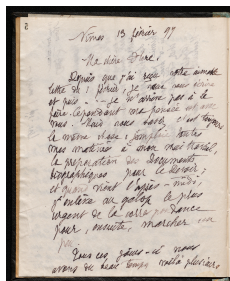 8
Nîmes 13 février 97
Ma chère
Depuis que j'ai reçu votre aimable
lettre de Paris, je veux vous écrire
et puis - je n'arrive pas à le
faire. Cependant ma pensée
vous. Chez nous c'est toujours
la même chose : j'emploie toutes
mes matinées à mon travail,
la préparation des Documents
biographiques pour le
et quand vient l'après-midi,
j'enlève au galop le plus
urgent de la correspondance
pour, ensuite, marcher un
peu.
Tous ces jours-ci nous
avons du beau temps, voilà plusieurs